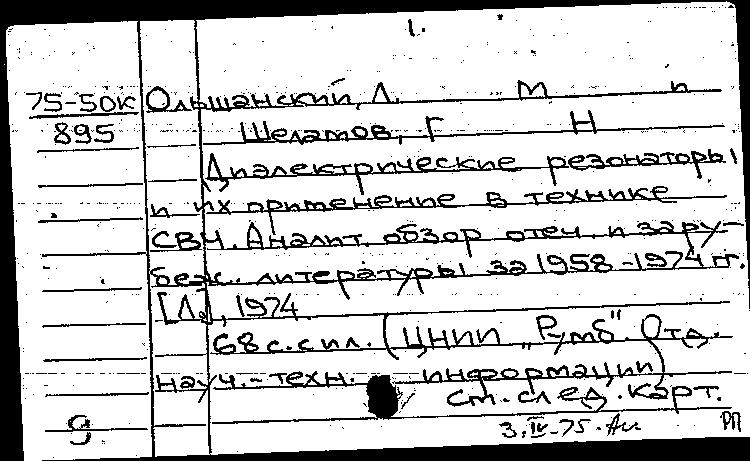 1.
75-50К Ольшанский, Л. М и
895 Шелатов, Г Н
Диэлектрические резонаторы
и их применение в технике
СВЧ. Аналит. обзор отеч. и зару-
беж. литературы за 1958-1974 гг.
[Л.], 1974.
68 с. с ил. (ЦНИИ „Румб". Отд.
науч.-техн. информации).
См. след. карт.
9 3.IV-75. РП